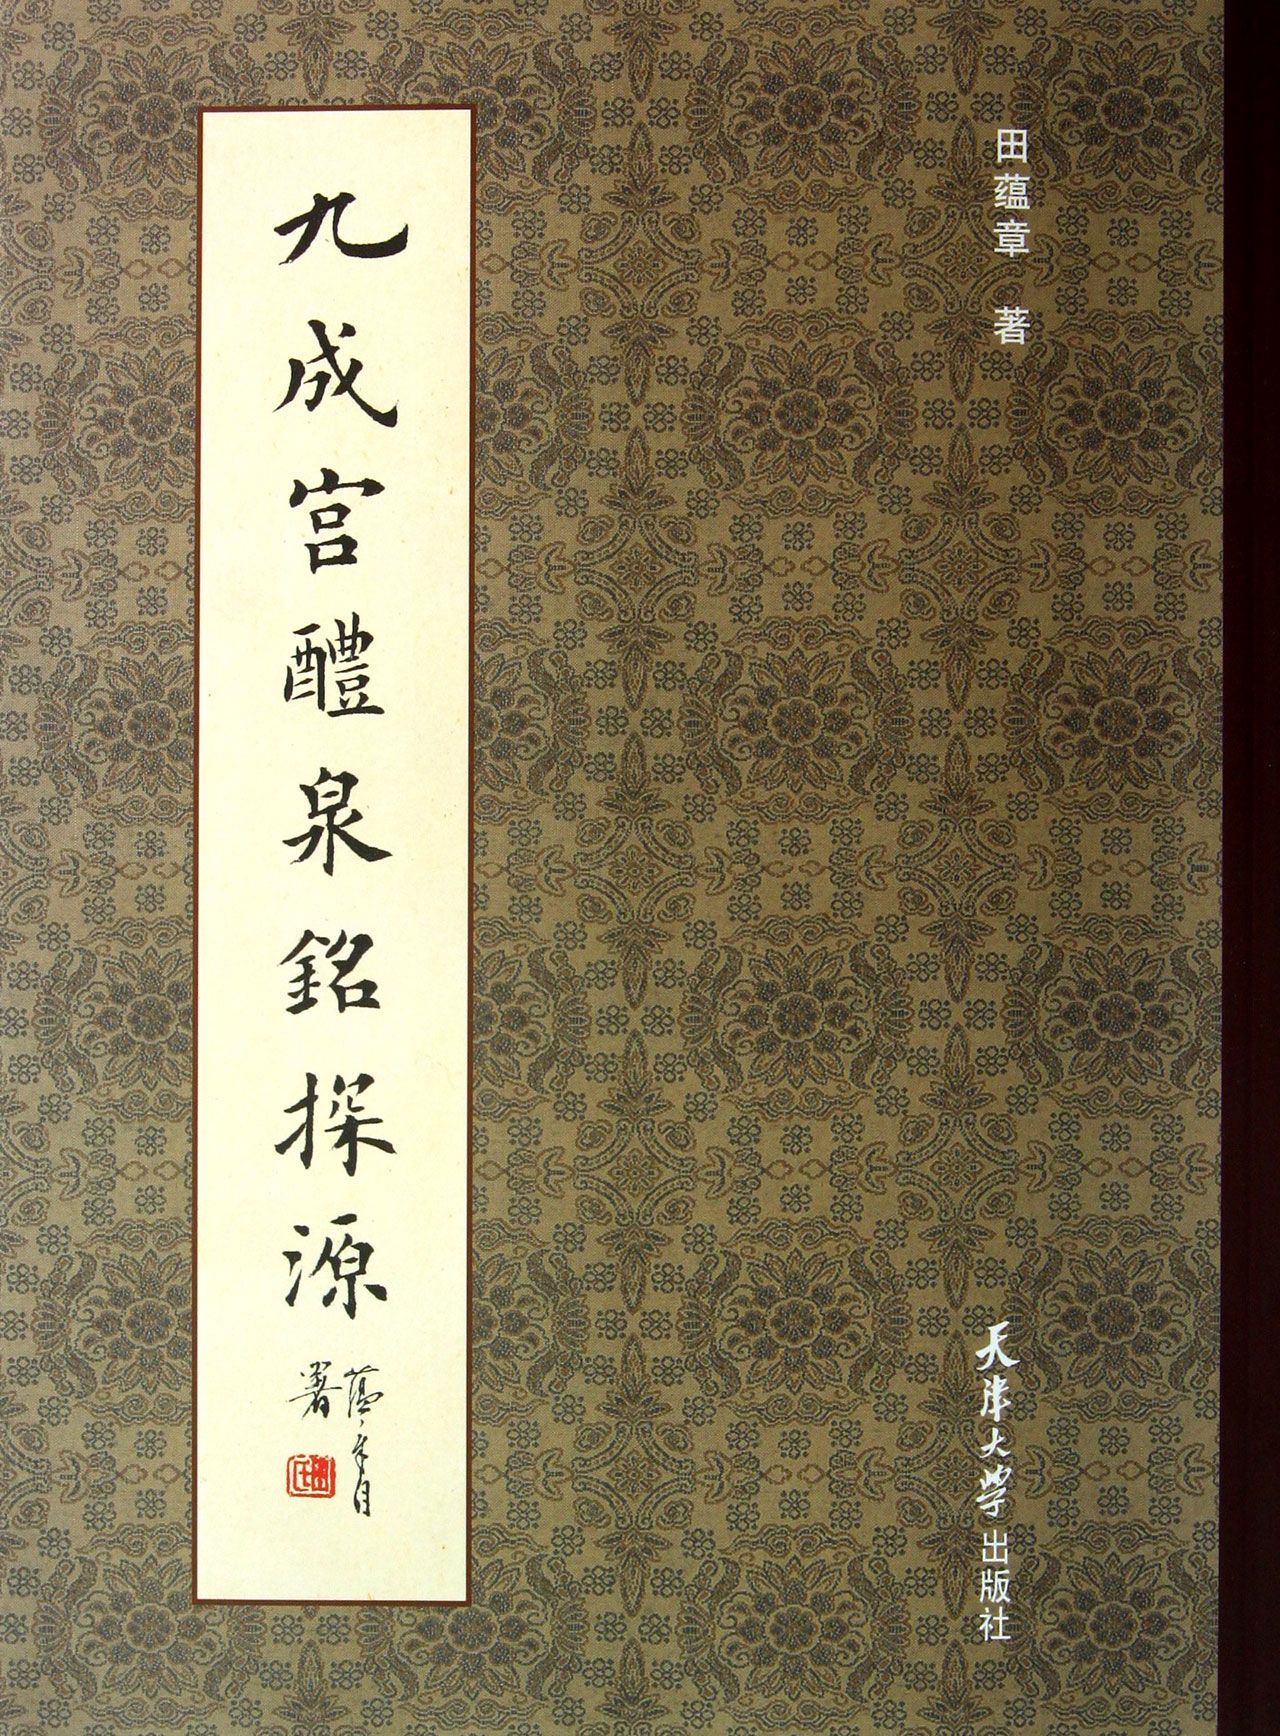 田蕴章 著
天津大学出版社
九成宫醴泉銘探源
蕴章自
署